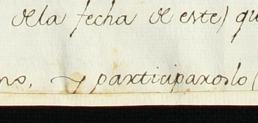 dela fecha de este) qu
no, y participaroslo (